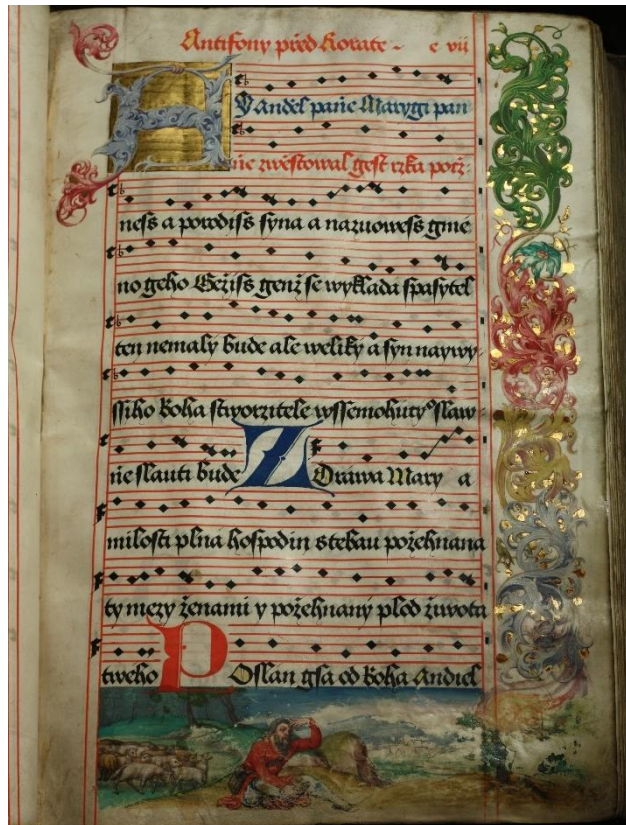 Antifony před Rorate - e vii
HVandel panie Marygi pan
nie zwěstowal gest rzka porž-
ness a porodiss syna a nazuowess gmé
no geho Gežiss genž se wykłada spasytel
ten nemaly bude ale weliky a syn naywy-
ssiho boha stworzitele wssemohuty° slaw-
nie slauti bude ZDrawa Mary a
milosti plna hospodin stebau požehnana
ty mezy ženami y požehnaný plod žiwota
tweho POslan gsa od boha Andiel